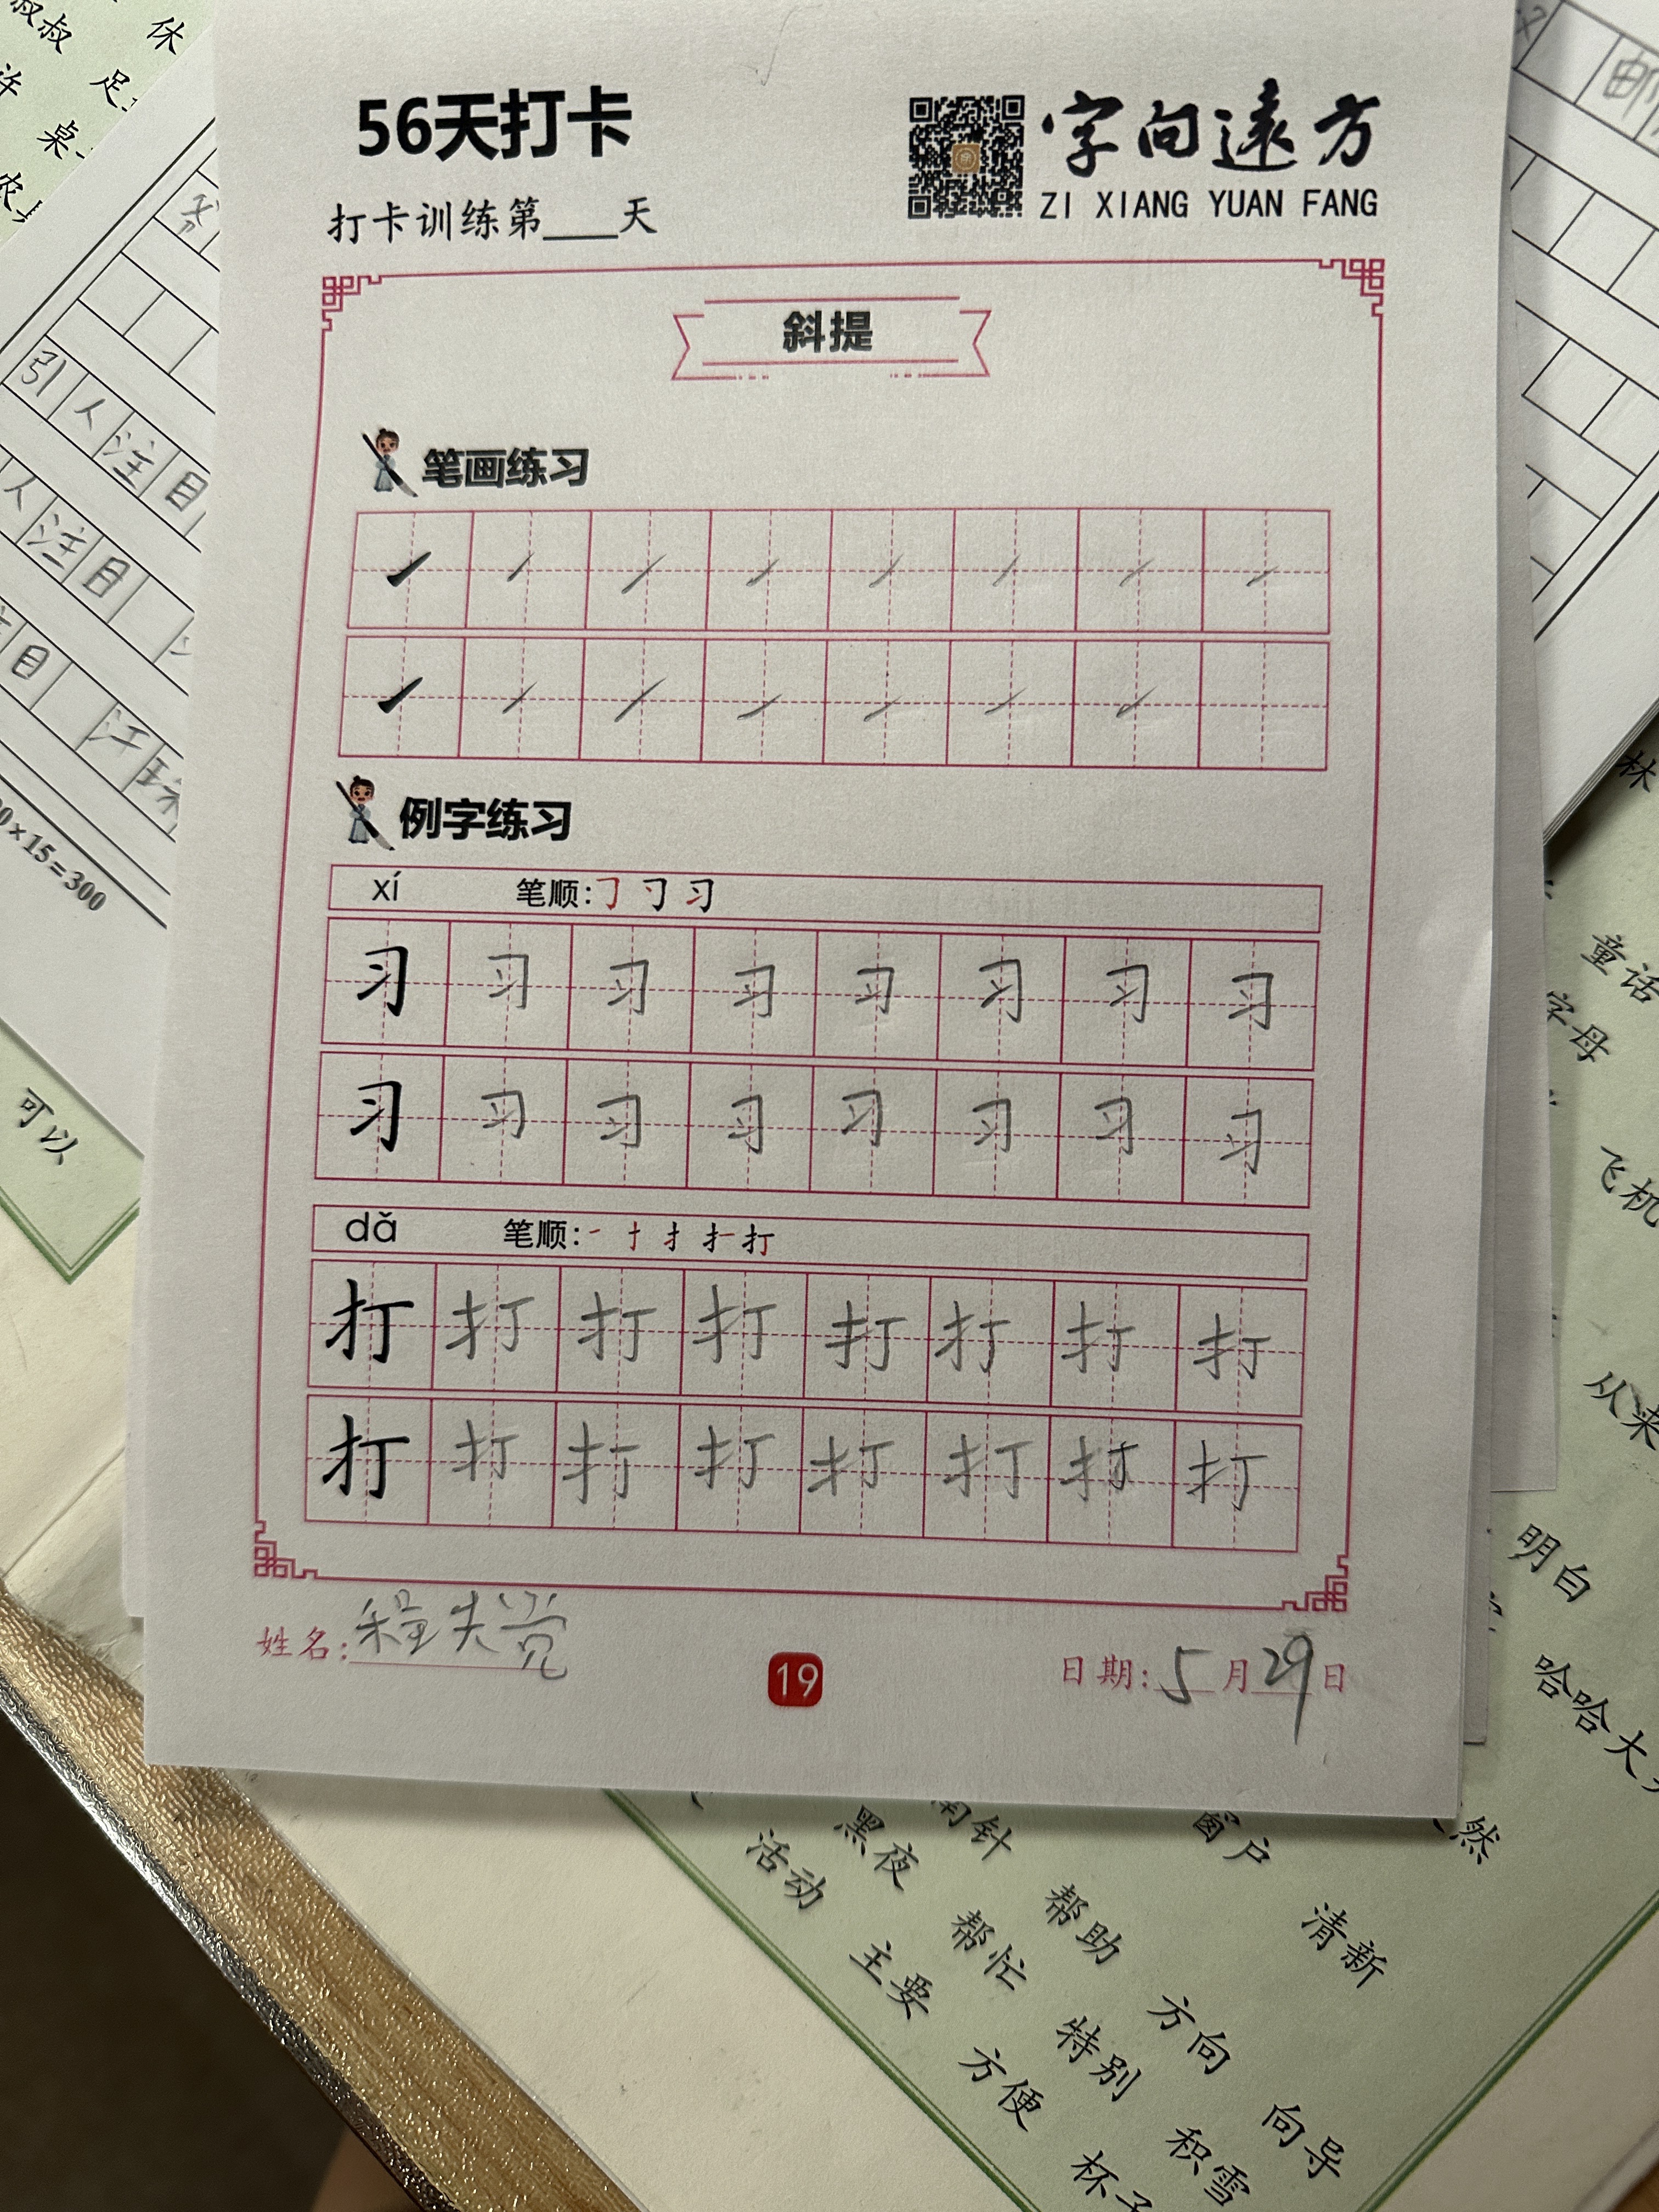 56天打卡
字向遠方
打卡训练第____天
ZI XIANG YUAN FANG
斜提
笔画练习
例字练习
xí 笔顺:㇆ 刁 习
习 习 习 习 习 习 习 习
习 习 习 习 习 习 习 习
dǎ 笔顺:一 十 扌 扌一 打
打 打 打 打 打 打 打 打
打 打 打 打 打 打 打 打
姓名:程
19
日期:5月29日
叔叔
休
桌
引人注目
人注目
目
×15=300
可以
林
童话
字母
飞机
从来
明白
哈哈大
然
窗户
黑夜
活动
帮助
清新
帮忙
主要
方向
特别
方便
向导
积雪